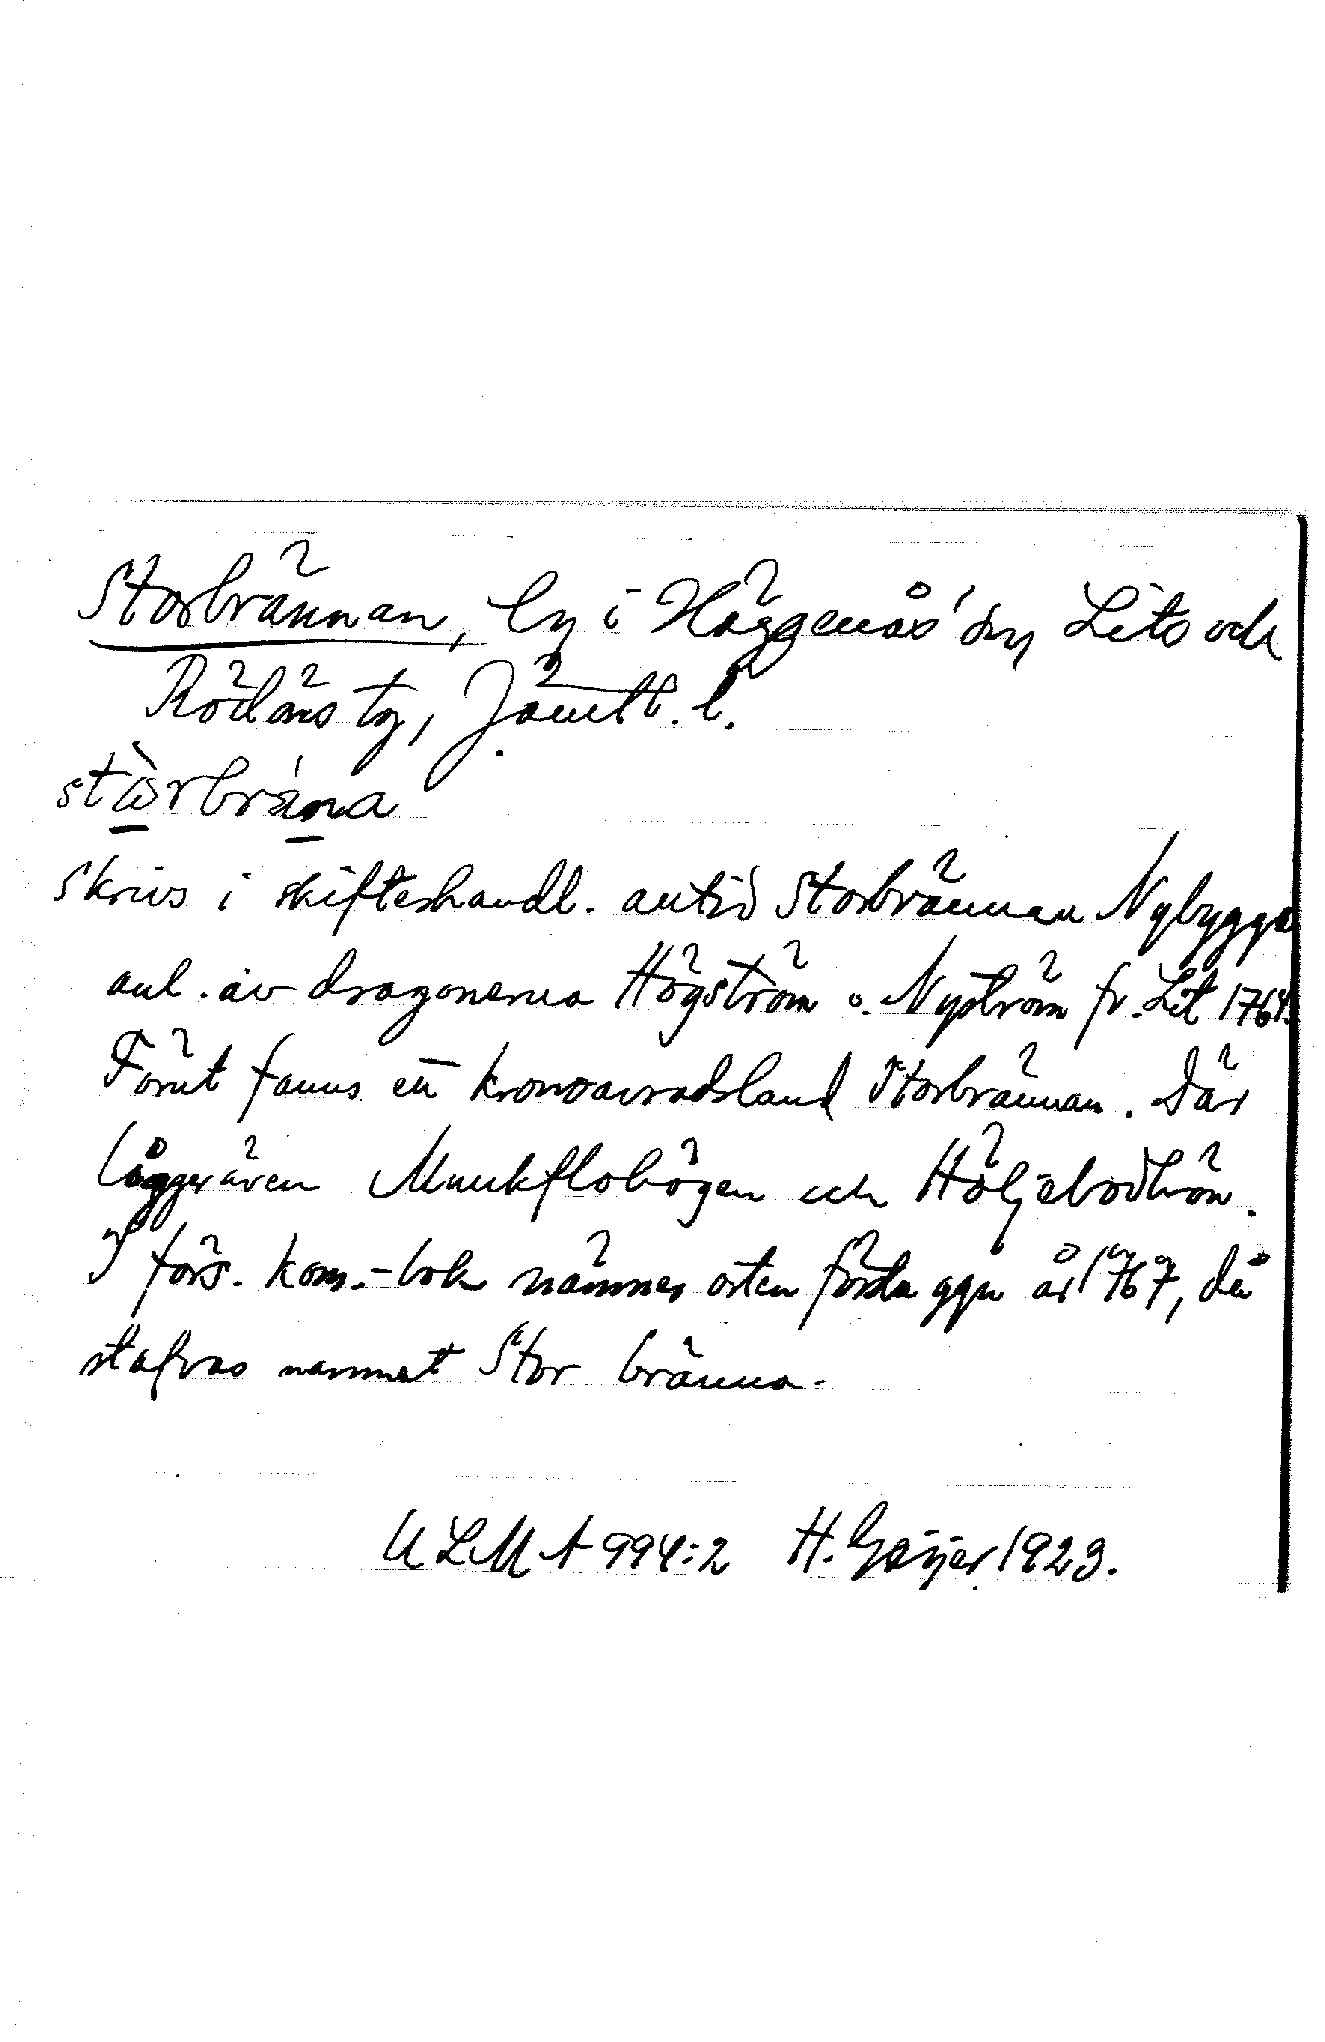 Storbrännan, by i Häggenås sn, Lits och
Rödöns tg, Jämtl. l.
stòrbräna
Skrivs i skifteshandl. antid Storbrännan Nybygge
anl. av dragonerna Högström o. Nyström fr. Lit 1764.
Förut fanns en kronoavradsland Storbrännan. Där
ligger även Munkflohögen och Höljebodhön.
I förs. kom.-bok nämnes orten första ggn år 1767, då
stafvas namnet Stor bränna.
ULMA 994:2 H. Geijer 1923.